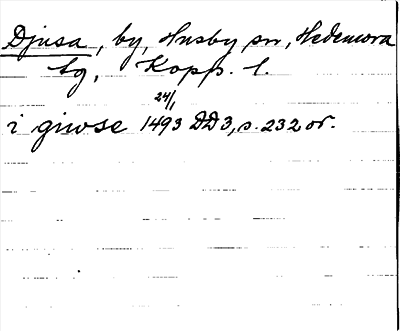 Djusa, by, Husby sn, Hedemora
tg, Kopp. l.
i giwse 24/1 1493 DD3, s. 232 or.